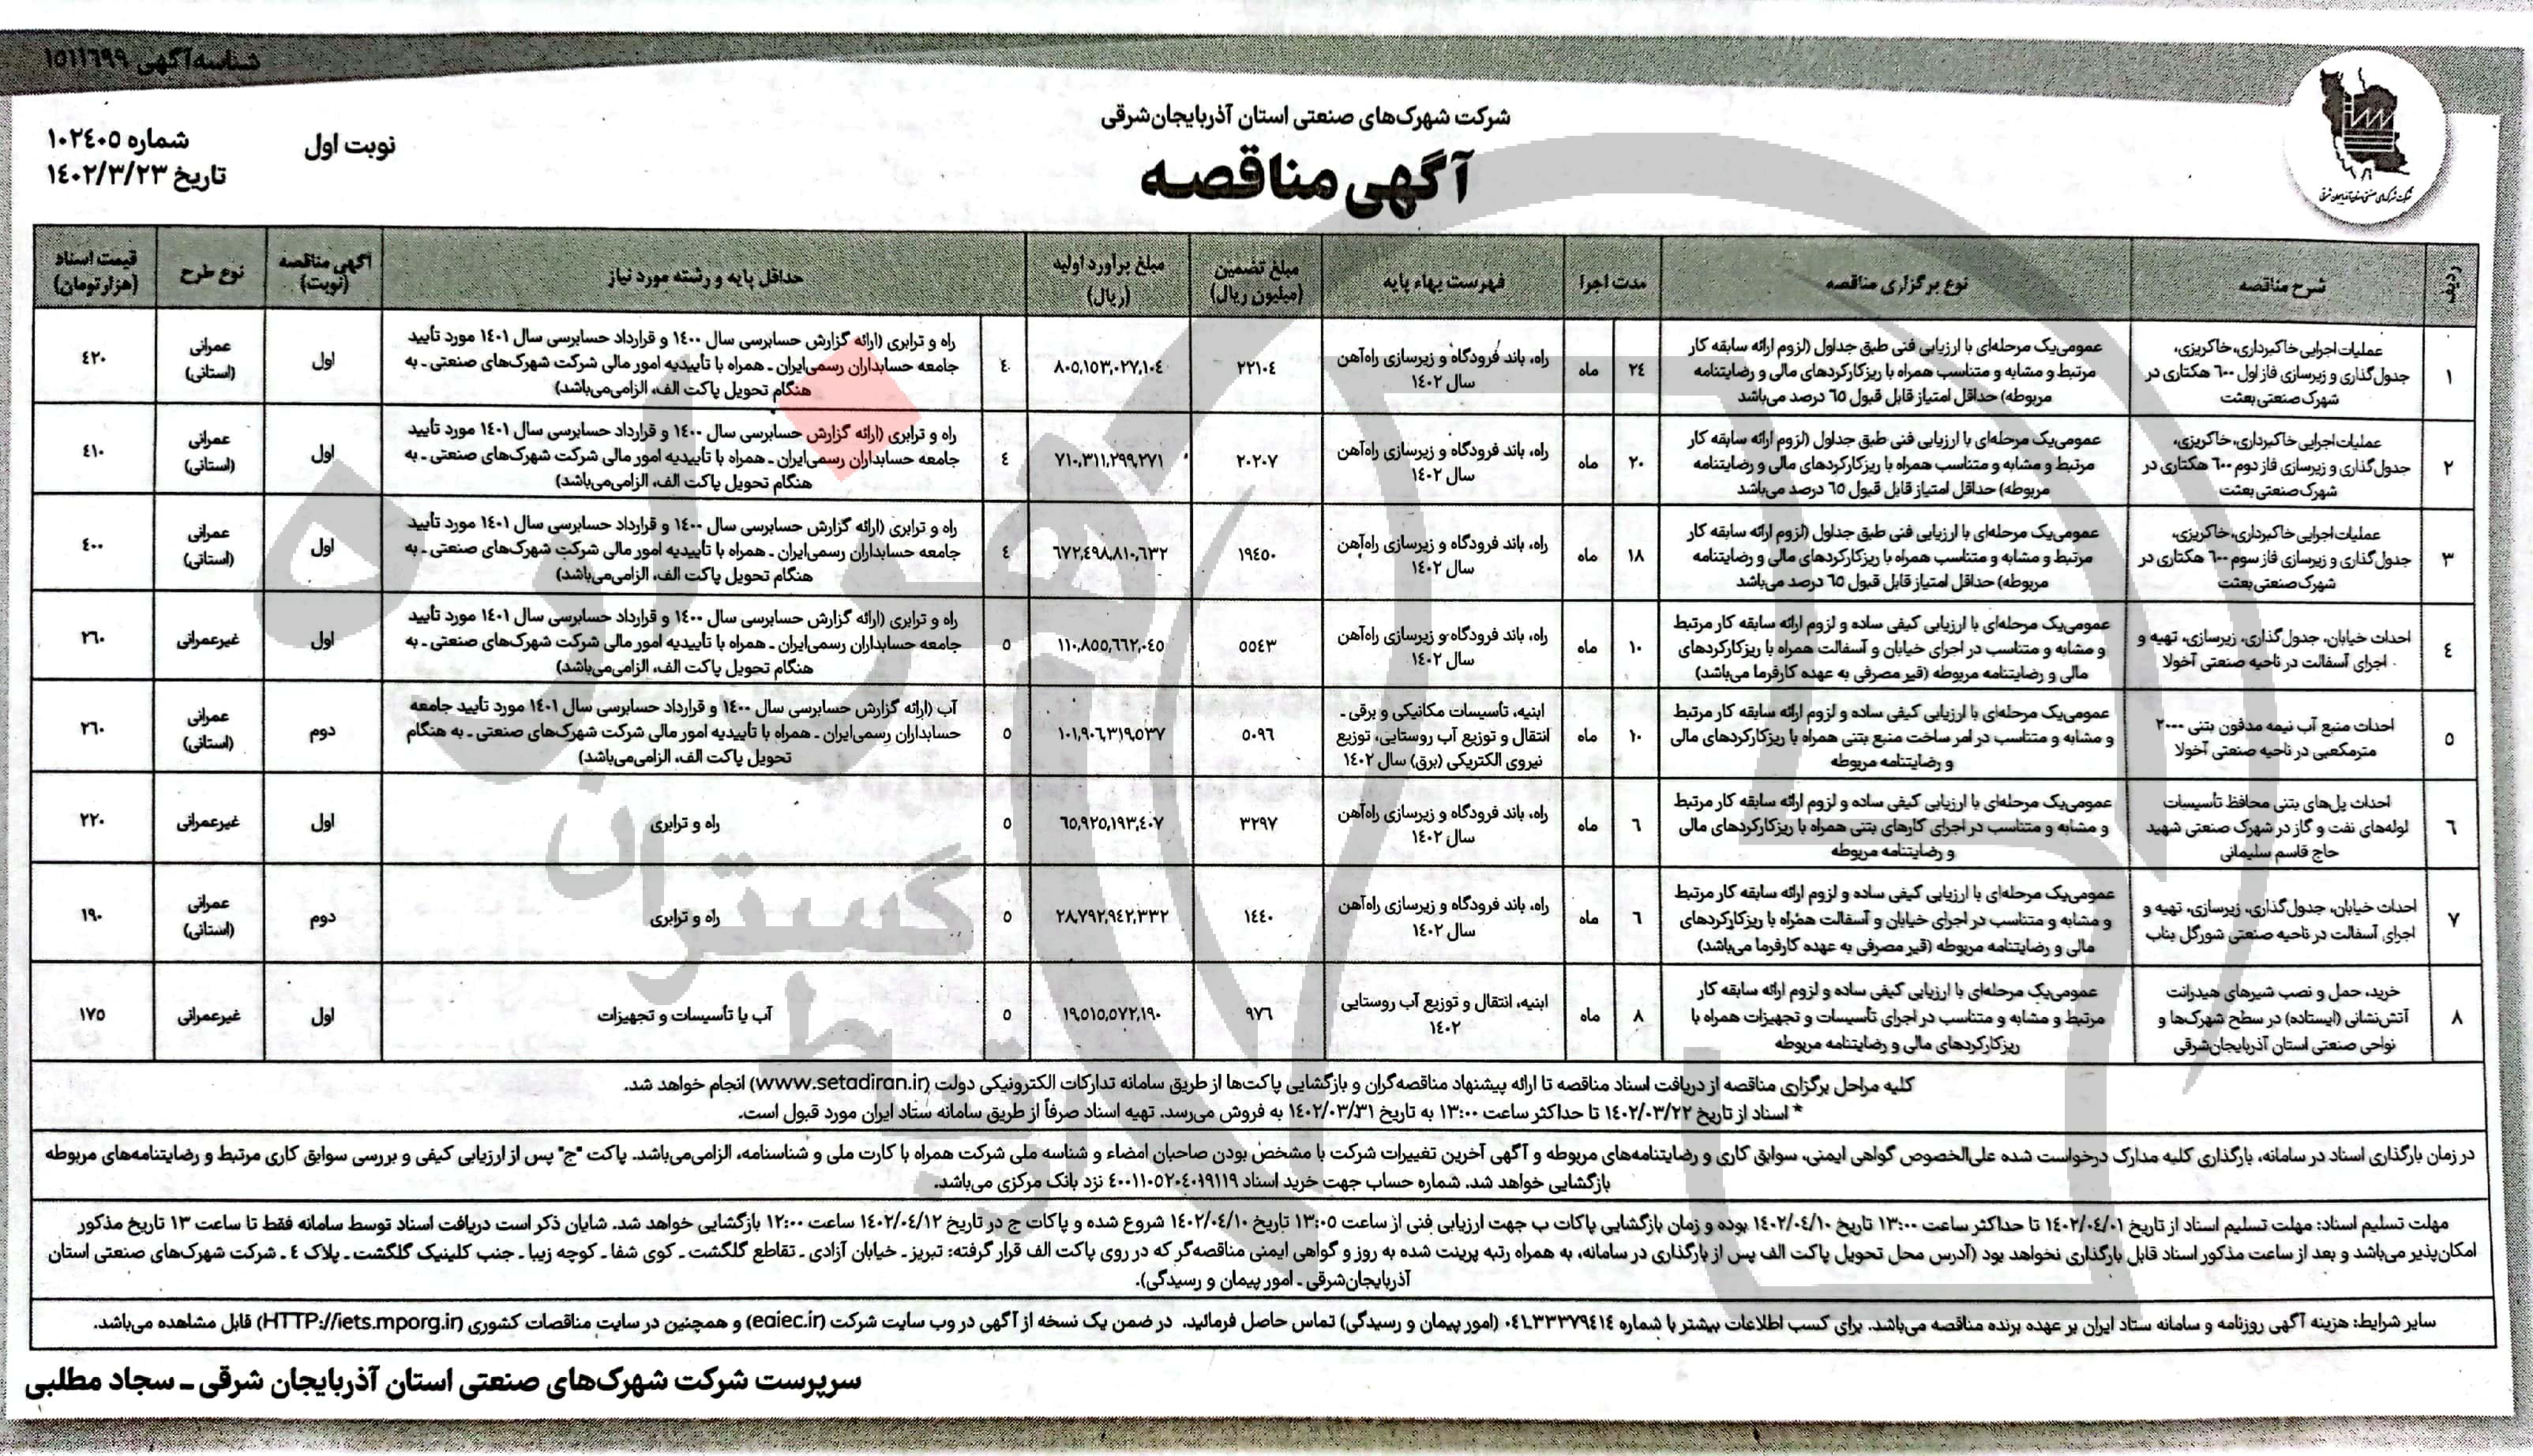 شناسه آگهی ١٥١١٦٩٩
شرکت شهرک‌های صنعتی استان آذربایجان‌شرقی
آگهی مناقصه
نوبت اول
شماره ١٠٢٤٠٥
تاریخ ١٤٠٢/٣/٢٣
ردیف
شرح مناقصه
نوع برگزاری مناقصه
مدت اجرا
فهرست بهاء پایه
مبلغ تضمین
(میلیون ریال)
مبلغ برآورد اولیه
(ریال)
حداقل پایه و رشته مورد نیاز
آگهی مناقصه
(نوبت)
نوع طرح
قیمت اسناد
(هزارتومان)
١
عملیات اجرایی خاکبرداری، خاکریزی،
جدول‌گذاری و زیرسازی فاز اول ٦٠٠ هکتاری در
شهرک صنعتی بعثت
عمومی‌یک مرحله‌ای با ارزیابی فنی طبق جداول (لزوم ارائه سابقه کار
مرتبط و مشابه و متناسب همراه با ریزکارکردهای مالی و رضایتنامه
مربوطه) حداقل امتیاز قابل قبول ٦٥ درصد می‌باشد
٢٤
ماه
راه، باند فرودگاه و زیرسازی راه‌آهن
سال ١٤٠٢
٢٢١٠٤
٨٠٥,١٥٣,٠٢٧,١٠٤
٤
راه و ترابری (ارائه گزارش حسابرسی سال ١٤٠٠ و قرارداد حسابرسی سال ١٤٠١ مورد تأیید
جامعه حسابداران رسمی‌ایران ـ همراه با تأییدیه امور مالی شرکت شهرک‌های صنعتی ـ به
هنگام تحویل پاکت الف، الزامی‌می‌باشد)
اول
عمرانی
(استانی)
٤٢٠
٢
عملیات اجرایی خاکبرداری، خاکریزی،
جدول‌گذاری و زیرسازی فاز دوم ٦٠٠ هکتاری در
شهرک صنعتی بعثت
عمومی‌یک مرحله‌ای با ارزیابی فنی طبق جداول (لزوم ارائه سابقه کار
مرتبط و مشابه و متناسب همراه با ریزکارکردهای مالی و رضایتنامه
مربوطه) حداقل امتیاز قابل قبول ٦٥ درصد می‌باشد
٢٠
ماه
راه، باند فرودگاه و زیرسازی راه‌آهن
سال ١٤٠٢
٢٠٢٠٧
٧١٠,٣١١,٢٩٩,٢٧١
٤
راه و ترابری (ارائه گزارش حسابرسی سال ١٤٠٠ و قرارداد حسابرسی سال ١٤٠١ مورد تأیید
جامعه حسابداران رسمی‌ایران ـ همراه با تأییدیه امور مالی شرکت شهرک‌های صنعتی ـ به
هنگام تحویل پاکت الف، الزامی‌می‌باشد)
اول
عمرانی
(استانی)
٤١٠
٣
عملیات اجرایی خاکبرداری، خاکریزی،
جدول‌گذاری و زیرسازی فاز سوم ٦٠٠ هکتاری در
شهرک صنعتی بعثت
عمومی‌یک مرحله‌ای با ارزیابی فنی طبق جداول (لزوم ارائه سابقه کار
مرتبط و مشابه و متناسب همراه با ریزکارکردهای مالی و رضایتنامه
مربوطه) حداقل امتیاز قابل قبول ٦٥ درصد می‌باشد
١٨
ماه
راه، باند فرودگاه و زیرسازی راه‌آهن
سال ١٤٠٢
١٩٤٥٠
٦٧٢,٤٩٨,٨١٠,٦٣٢
٤
راه و ترابری (ارائه گزارش حسابرسی سال ١٤٠٠ و قرارداد حسابرسی سال ١٤٠١ مورد تأیید
جامعه حسابداران رسمی‌ایران ـ همراه با تأییدیه امور مالی شرکت شهرک‌های صنعتی ـ به
هنگام تحویل پاکت الف، الزامی‌می‌باشد)
اول
عمرانی
(استانی)
٤٠٠
٤
احداث خیابان، جدول‌گذاری، زیرسازی، تهیه و
اجرای آسفالت در ناحیه صنعتی آخولا
عمومی‌یک مرحله‌ای با ارزیابی کیفی ساده و لزوم ارائه سابقه کار مرتبط
و مشابه و متناسب در اجرای خیابان و آسفالت همراه با ریزکارکردهای
مالی و رضایتنامه مربوطه (قیر مصرفی به عهده کارفرما می‌باشد)
١٠
ماه
راه، باند فرودگاه و زیرسازی راه‌آهن
سال ١٤٠٢
٥٥٤٣
١١٠,٨٥٥,٦٦٢,٠٤٥
٥
راه و ترابری (ارائه گزارش حسابرسی سال ١٤٠٠ و قرارداد حسابرسی سال ١٤٠١ مورد تأیید
جامعه حسابداران رسمی‌ایران ـ همراه با تأییدیه امور مالی شرکت شهرک‌های صنعتی ـ به
هنگام تحویل پاکت الف، الزامی‌می‌باشد)
اول
غیرعمرانی
٢٦٠
٥
احداث منبع آب نیمه مدفون بتنی ٢٠٠٠
مترمکعبی در ناحیه صنعتی آخولا
عمومی‌یک مرحله‌ای با ارزیابی کیفی ساده و لزوم ارائه سابقه کار مرتبط
و مشابه و متناسب در امر ساخت منبع بتنی همراه با ریزکارکردهای مالی
و رضایتنامه مربوطه
١٠
ماه
ابنیه، تأسیسات مکانیکی و برقی ـ
انتقال و توزیع آب روستایی، توزیع
نیروی الکتریکی (برق) سال ١٤٠٢
٥٠٩٦
١٠١,٩٠٦,٣١٩,٥٣٧
٥
آب (ارائه گزارش حسابرسی سال ١٤٠٠ و قرارداد حسابرسی سال ١٤٠١ مورد تأیید جامعه
حسابداران رسمی‌ایران ـ همراه با تأییدیه امور مالی شرکت شهرک‌های صنعتی ـ به هنگام
تحویل پاکت الف، الزامی‌می‌باشد)
دوم
عمرانی
(استانی)
٢٦٠
٦
احداث پل‌های بتنی محافظ تأسیسات
لوله‌های نفت و گاز در شهرک صنعتی شهید
حاج قاسم سلیمانی
عمومی‌یک مرحله‌ای با ارزیابی کیفی ساده و لزوم ارائه سابقه کار مرتبط
و مشابه و متناسب در اجرای کارهای بتنی همراه با ریزکارکردهای مالی
و رضایتنامه مربوطه
٦
ماه
راه، باند فرودگاه و زیرسازی راه‌آهن
سال ١٤٠٢
٣٢٩٧
٦٥,٩٢٥,١٩٣,٤٠٧
٥
راه و ترابری
اول
غیرعمرانی
٢٢٠
٧
احداث خیابان، جدول‌گذاری، زیرسازی، تهیه و
اجرای آسفالت در ناحیه صنعتی شورگل بناب
عمومی‌یک مرحله‌ای با ارزیابی کیفی ساده و لزوم ارائه سابقه کار مرتبط
و مشابه و متناسب در اجرای خیابان و آسفالت همراه با ریزکارکردهای
مالی و رضایتنامه مربوطه (قیر مصرفی به عهده کارفرما می‌باشد)
٦
ماه
راه، باند فرودگاه و زیرسازی راه‌آهن
سال ١٤٠٢
١٤٤٠
٢٨,٧٩٢,٩٤٢,٣٣٢
٥
راه و ترابری
دوم
عمرانی
(استانی)
١٩٠
٨
خرید، حمل و نصب شیرهای هیدرانت
آتش‌نشانی (ایستاده) در سطح شهرک‌ها و
نواحی صنعتی استان آذربایجان‌شرقی
عمومی‌یک مرحله‌ای با ارزیابی کیفی ساده و لزوم ارائه سابقه کار
مرتبط و مشابه و متناسب در اجرای تأسیسات و تجهیزات همراه با
ریزکارکردهای مالی و رضایتنامه مربوطه
٨
ماه
ابنیه، انتقال و توزیع آب روستایی
١٤٠٢
٩٧٦
١٩,٥١٥,٥٧٢,١٩٠
٥
آب یا تأسیسات و تجهیزات
اول
غیرعمرانی
١٧٥
کلیه مراحل برگزاری مناقصه از دریافت اسناد مناقصه تا ارائه پیشنهاد مناقصه‌گران و بازگشایی پاکت‌ها از طریق سامانه تدارکات الکترونیکی دولت (www.setadiran.ir) انجام خواهد شد.
* اسناد از تاریخ ١٤٠٢/٠٣/٢٢ تا حداکثر ساعت ١٣:٠٠ به تاریخ ١٤٠٢/٠٣/٣١ به فروش می‌رسد. تهیه اسناد صرفاً از طریق سامانه ستاد ایران مورد قبول است.
در زمان بارگذاری اسناد در سامانه، بارگذاری کلیه مدارک درخواست شده علی‌الخصوص گواهی ایمنی، سوابق کاری و رضایتنامه‌های مربوطه و آگهی آخرین تغییرات شرکت با مشخص بودن صاحبان امضاء و شناسه ملی شرکت همراه با کارت ملی و شناسنامه، الزامی‌می‌باشد. پاکت "ج" پس از ارزیابی کیفی و بررسی سوابق کاری مرتبط و رضایتنامه‌های مربوطه
بازگشایی خواهد شد. شماره حساب جهت خرید اسناد ٤٠٠١١٠٥٢٠٤٠١٩١١٩ نزد بانک مرکزی می‌باشد.
مهلت تسلیم اسناد: مهلت تسلیم اسناد از تاریخ ١٤٠٢/٠٤/٠١ تا حداکثر ساعت ١٣:٠٠ تاریخ ١٤٠٢/٠٤/١٠ بوده و زمان بازگشایی پاکات ب جهت ارزیابی فنی از ساعت ١٣:٠٥ تاریخ ١٤٠٢/٠٤/١٠ شروع شده و پاکات ج در تاریخ ١٤٠٢/٠٤/١٢ ساعت ١٢:٠٠ بازگشایی خواهد شد. شایان ذکر است دریافت اسناد توسط سامانه فقط تا ساعت ١٣ تاریخ مذکور
امکان‌پذیر می‌باشد و بعد از ساعت مذکور اسناد قابل بارگذاری نخواهد بود (آدرس محل تحویل پاکت الف پس از بارگذاری در سامانه، به همراه رتبه پرینت شده به روز و گواهی ایمنی مناقصه‌گر که در روی پاکت الف قرار گرفته: تبریز ـ خیابان آزادی ـ تقاطع گلگشت ـ کوی شفا ـ کوچه زیبا ـ جنب کلینیک گلگشت ـ پلاک ٤ ـ شرکت شهرک‌های صنعتی استان
آذربایجان‌شرقی ـ امور پیمان و رسیدگی).
سایر شرایط: هزینه آگهی روزنامه و سامانه ستاد ایران بر عهده برنده مناقصه می‌باشد. برای کسب اطلاعات بیشتر با شماره ٠٤١ـ٣٣٣٧٩٤١٤ (امور پیمان و رسیدگی) تماس حاصل فرمائید. در ضمن یک نسخه از آگهی در وب سایت شرکت (eaiec.ir) و همچنین در سایت مناقصات کشوری (HTTP://iets.mporg.ir) قابل مشاهده می‌باشد.
سرپرست شرکت شهرک‌های صنعتی استان آذربایجان شرقی ـ سجاد مطلبی